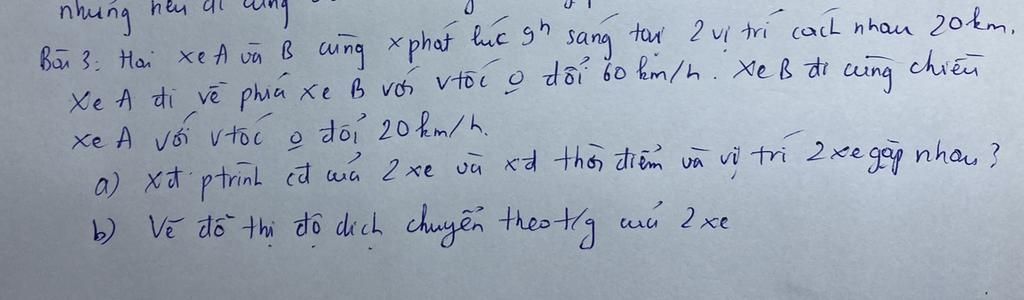 nhưng nếu đi cùng
Bài 3: Hai xe A và B cùng xphát lúc 9h sáng tại 2 vị trí cách nhau 20 km.
Xe A đi về phía xe B với vtốc o đổi 60 km/h. Xe B đi cùng chiều
xe A với vtốc o đổi 20 km/h.
a) Xđ ptrình cđ của 2 xe và xđ thời điểm và vị trí 2 xe gặp nhau?
b) Vẽ đồ thị độ dịch chuyển theo t/g của 2 xe